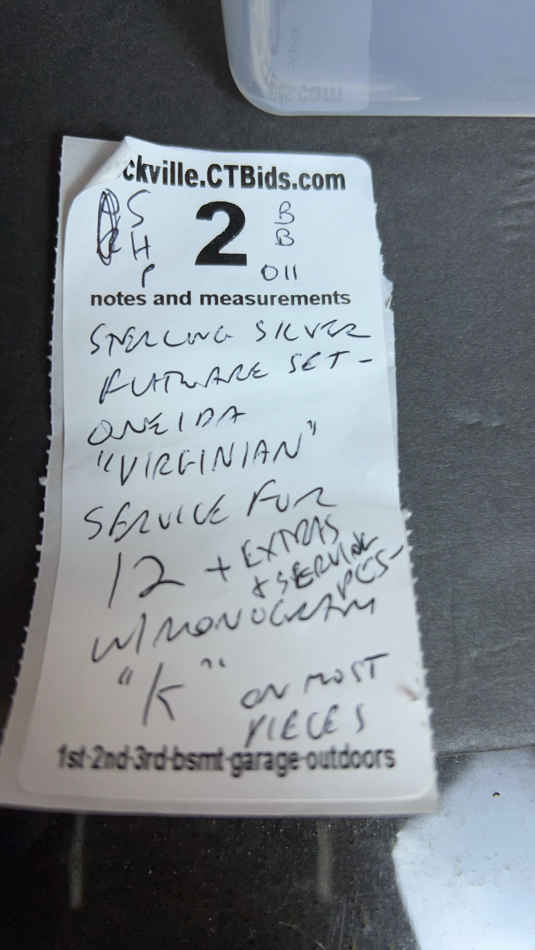 ckville.CTBids.com
S 2 B
H B
P 011
notes and measurements
STERLING SILVER
FLATWARE SET-
ONEIDA
"VIRGINIAN"
SERVICE FOR
12 + EXTRAS
+ SERVING
PCS-
W/MONOGRAM
"K" ON MOST
PIECES
1st-2nd-3rd-bsmt-garage-outdoors